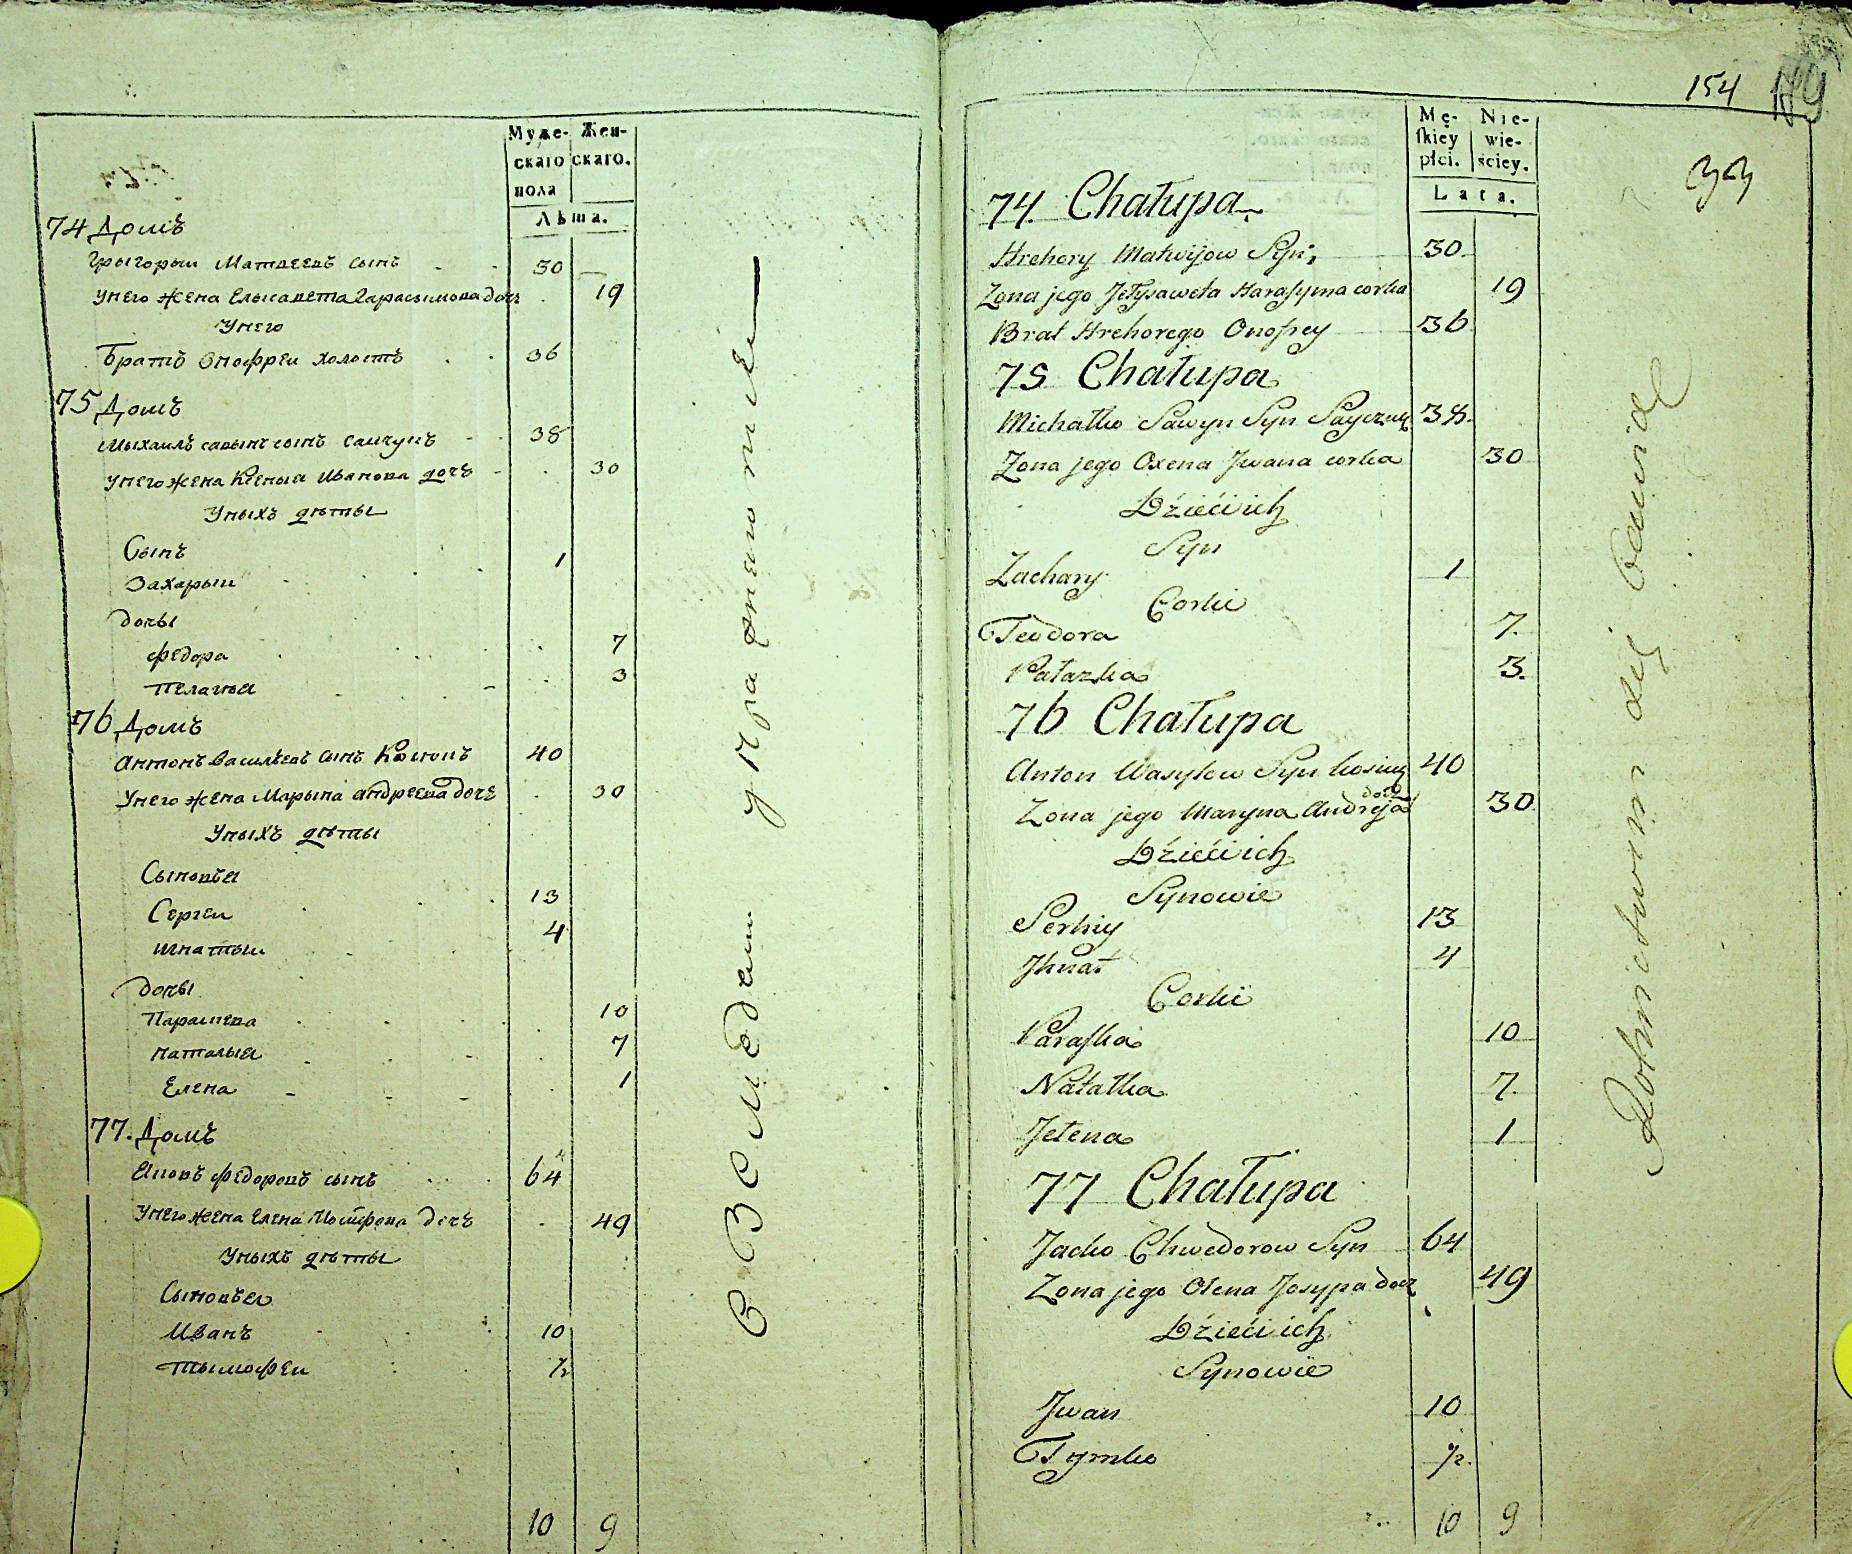 Муже- Жен-
скаго скаго.
пола
Лѣта.
74 Домъ
Григорыи Матвеевъ сынъ 30
унего жена Елысавета Гарасымова дочь 19
Унего
Братъ Онофреи холостъ 36
75 Домъ
Мыхаилъ савынъ сынъ 38
унего жена Ксеныя Иванова дочъ 30
Уныхъ дѣты
Сынъ
Захарыи 1
дочы
Федора 7
Пелагыя 3
76 Домъ
Антонъ Васильевъ сынъ 40
Унего жена Марына андреева дочъ 30
Уныхъ дѣты
Сыновья
Сергеи 13
игнатыи 4
дочы
Параскева 10
наталыя 7
Елена 1
77. Домъ
Яковъ Федоровъ сынъ 64
Унего жена Елена дочъ 49
Уныхъ дѣты
Сыновья
Иванъ 10
тымофеи 1/2
10 9
154
33
Mę- Nie-
ſkiey wie-
płci. ściey.
Lata.
74. Chałupa
Hrehory Matwijow Syn 30
Zona jego Jełysaweta Harasyma corka 19
Brat Hrehorego Onofrey 36
75 Chałupa
Michałko Sawyn Syn 38.
Zona jego Oxena Jwana corka 30
Dźieći ich
Syn
Zachary 1
Corki
Teodora 7.
Pałazka 3.
76 Chałupa
Anton Wasylow Syn 40
Zona jego Maryna Andreja docz 30
Dźieći ich
Synowie
Serhiy 13
Jhnat 4
Corki
Paraska 10
Natałka 7.
Jełena 1
77 Chałupa
Jacko Chwedorow Syn 64
Zona jego Olena Josypa docz 49
Dźieći ich
Synowie
Jwan 10
Tymko 1/2.
10 9
Rolnictwem się bawią